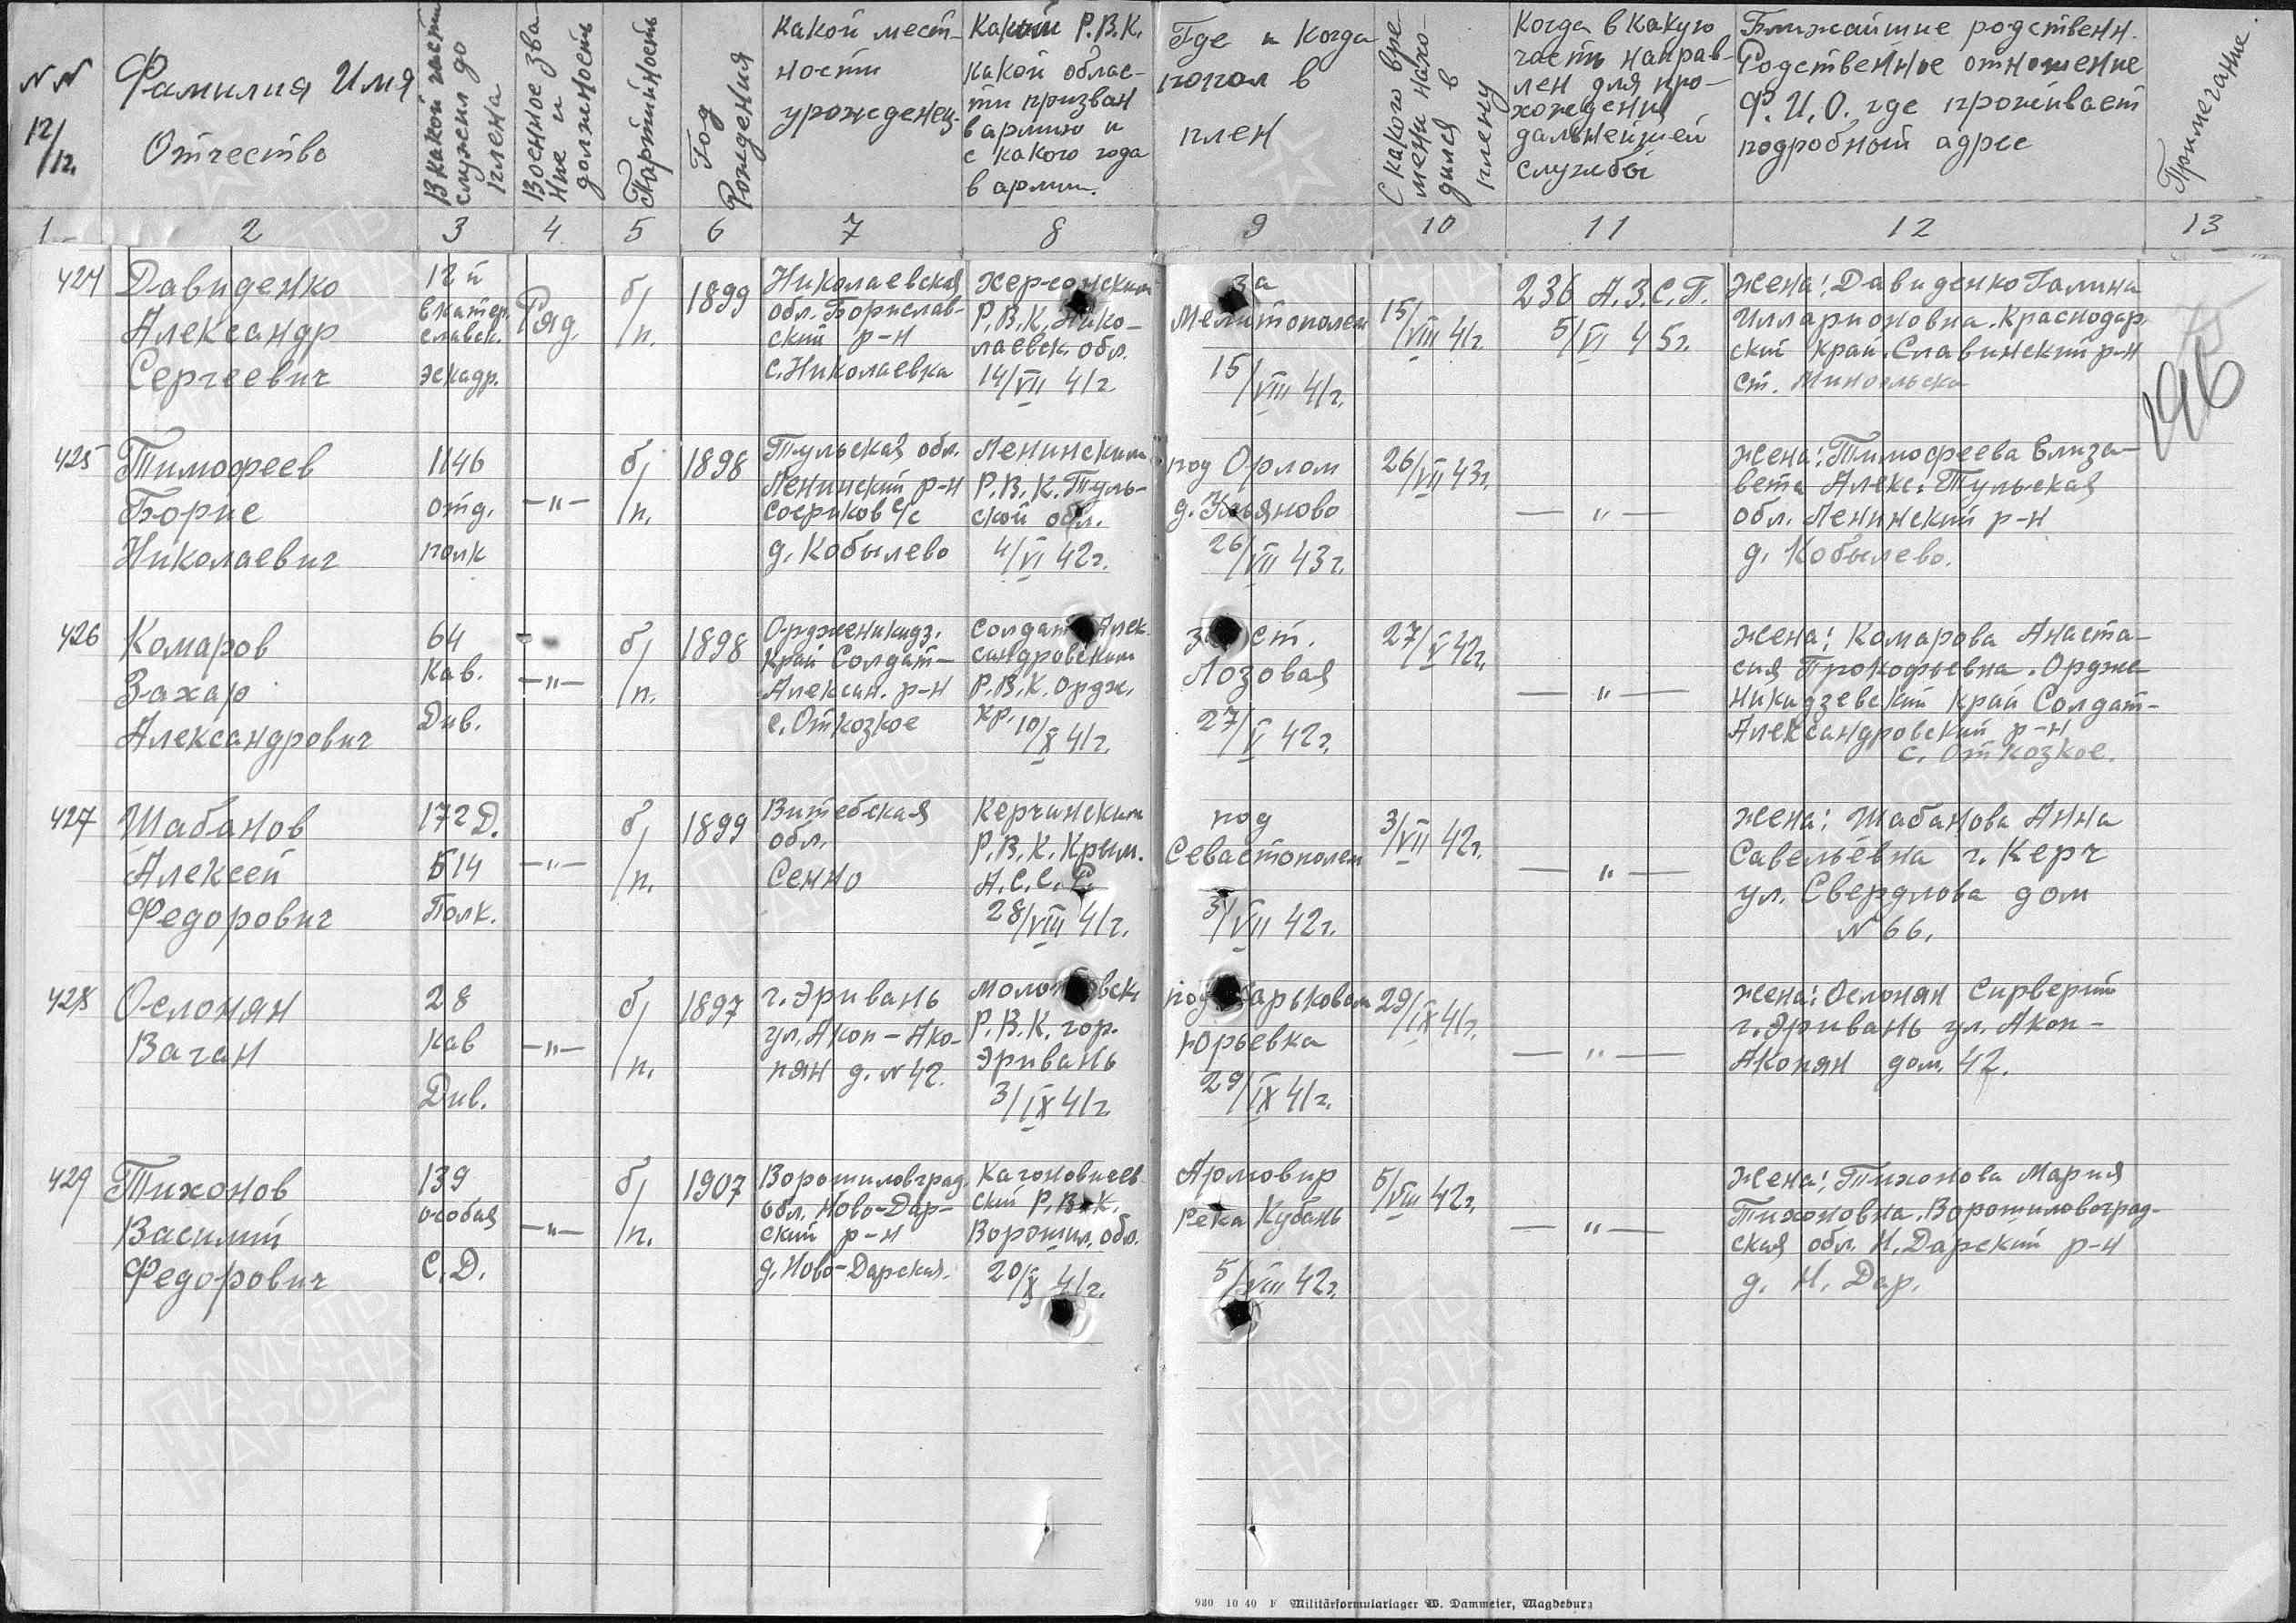 NN
п/п.
Фамилия Имя
Отчество
В какой части
служил до
плена
Военное зва-
ние и
должность
Партийность
Год
Рождения
Какой мест-
ности
урожденец.
Каким Р.В.К.
какой облас-
ти призван
в армию и
с какого года
в армии.
Где и когда
попал в
плен
С какого вре-
мени нахо-
дился в
плену
Когда в какую
часть направ-
лен для про-
хождения
дальнейшей
службы
Ближайшие родственн.
Родственное отношение
Ф.И.О. где проживает
подробный адрес
Примечание
1 2 3 4 5 6 7 8 9 10 11 12 13
424
Давиденко
Александр
Сергеевич
12й
Екатер.
славск.
эскадр.
Ряд.
б/п.
1899
Николаевская
обл. Бориславс-
ский р-н
с. Николаевка
Херсонским
Р.В.К. Нико-
лаевск. обл.
14/VII 41г
За
Мелитополем
15/VIII 41г.
15/VIII 41г.
236 А.З.С.П.
5/VI 45г.
жена: Давиденко Галина
Илларионовна. Краснодар.
ский край. Славинский р-н
ст.
196
425
Тимофеев
Борис
Николаевич
1146
отд.
полк
—"—
б/п.
1898
Тульская обл.
Ленинский р-н
с/с
д. Кобылево
Ленинским
Р.В.К. Туль-
ской обл.
4/VI 42г.
под Орлом
д. Ульяново
26/VII 43г.
26/VII 43г.
— " —
жена: Тимофеева Елиза-
вета Алекс. Тульская
обл. Ленинский р-н
д. Кобылево.
426
Комаров
Захар
Александрович
64
Кав.
Див.
—"—
б/п.
1898
Орджоникидз.
край Солдат-
Алексан. р-н
с. Откозкое
Солдат Алек-
сандровским
Р.В.К. Ордж.
кр. 10/X 41г.
за ст.
Лозовая
27/V 42г.
27/V 42г.
— " —
жена: Комарова Анаста-
сия Прокофьевна. Орджо
никидзевский край Солдат-
Александровский р-н
с. Откозкое.
427
Шабанов
Алексей
Федорович
172 Д.
514
Полк.
—"—
б/п.
1899
Витебская
обл.
Сенно
Керчинским
Р.В.К. Крым.
А.С.С.Р.
28/VIII 41г.
под
Севастополем
3/VII 42г.
3/VII 42г.
— " —
жена: Шабанова Анна
Савельевна г. Керч
ул. Свердлова дом
N 66.
428
Ослонян
Ваган
28
Кав
Див.
—"—
б/п.
1897
г. Эривань
ул. Акоп-Ако-
пян д. N 42.
Молотовск.
Р.В.К. гор.
Эривань
3/IX 41г.
под Харьковом
Юрьевка
29/IX 41г.
29/IX 41г.
— " —
жена: Ослонян Сирверит
г. Эривань ул. Акоп-
Акопян дом. 42.
429
Тихонов
Василий
Федорович
139
особая
С.Д.
—"—
б/п.
1907
Ворошиловград.
обл. Ново-Дар-
ский р-н
д. Ново-Дарская.
Кагоновичев-
ский Р.В.К.
Ворошил. обл.
20/X 41г.
Армовир
река Кубань
5/VIII 42г.
5/VIII 42г.
— " —
жена: Тихонова Мария
Тихоновна. Ворошиловоград-
ская обл. Н. Дарский р-н
д. Н. Дар.
930 10 40 F Militärformularlager W. Dammeier, Magdeburg
ПАМЯТЬ
НАРОДА
ПАМЯТЬ
НАРОДА